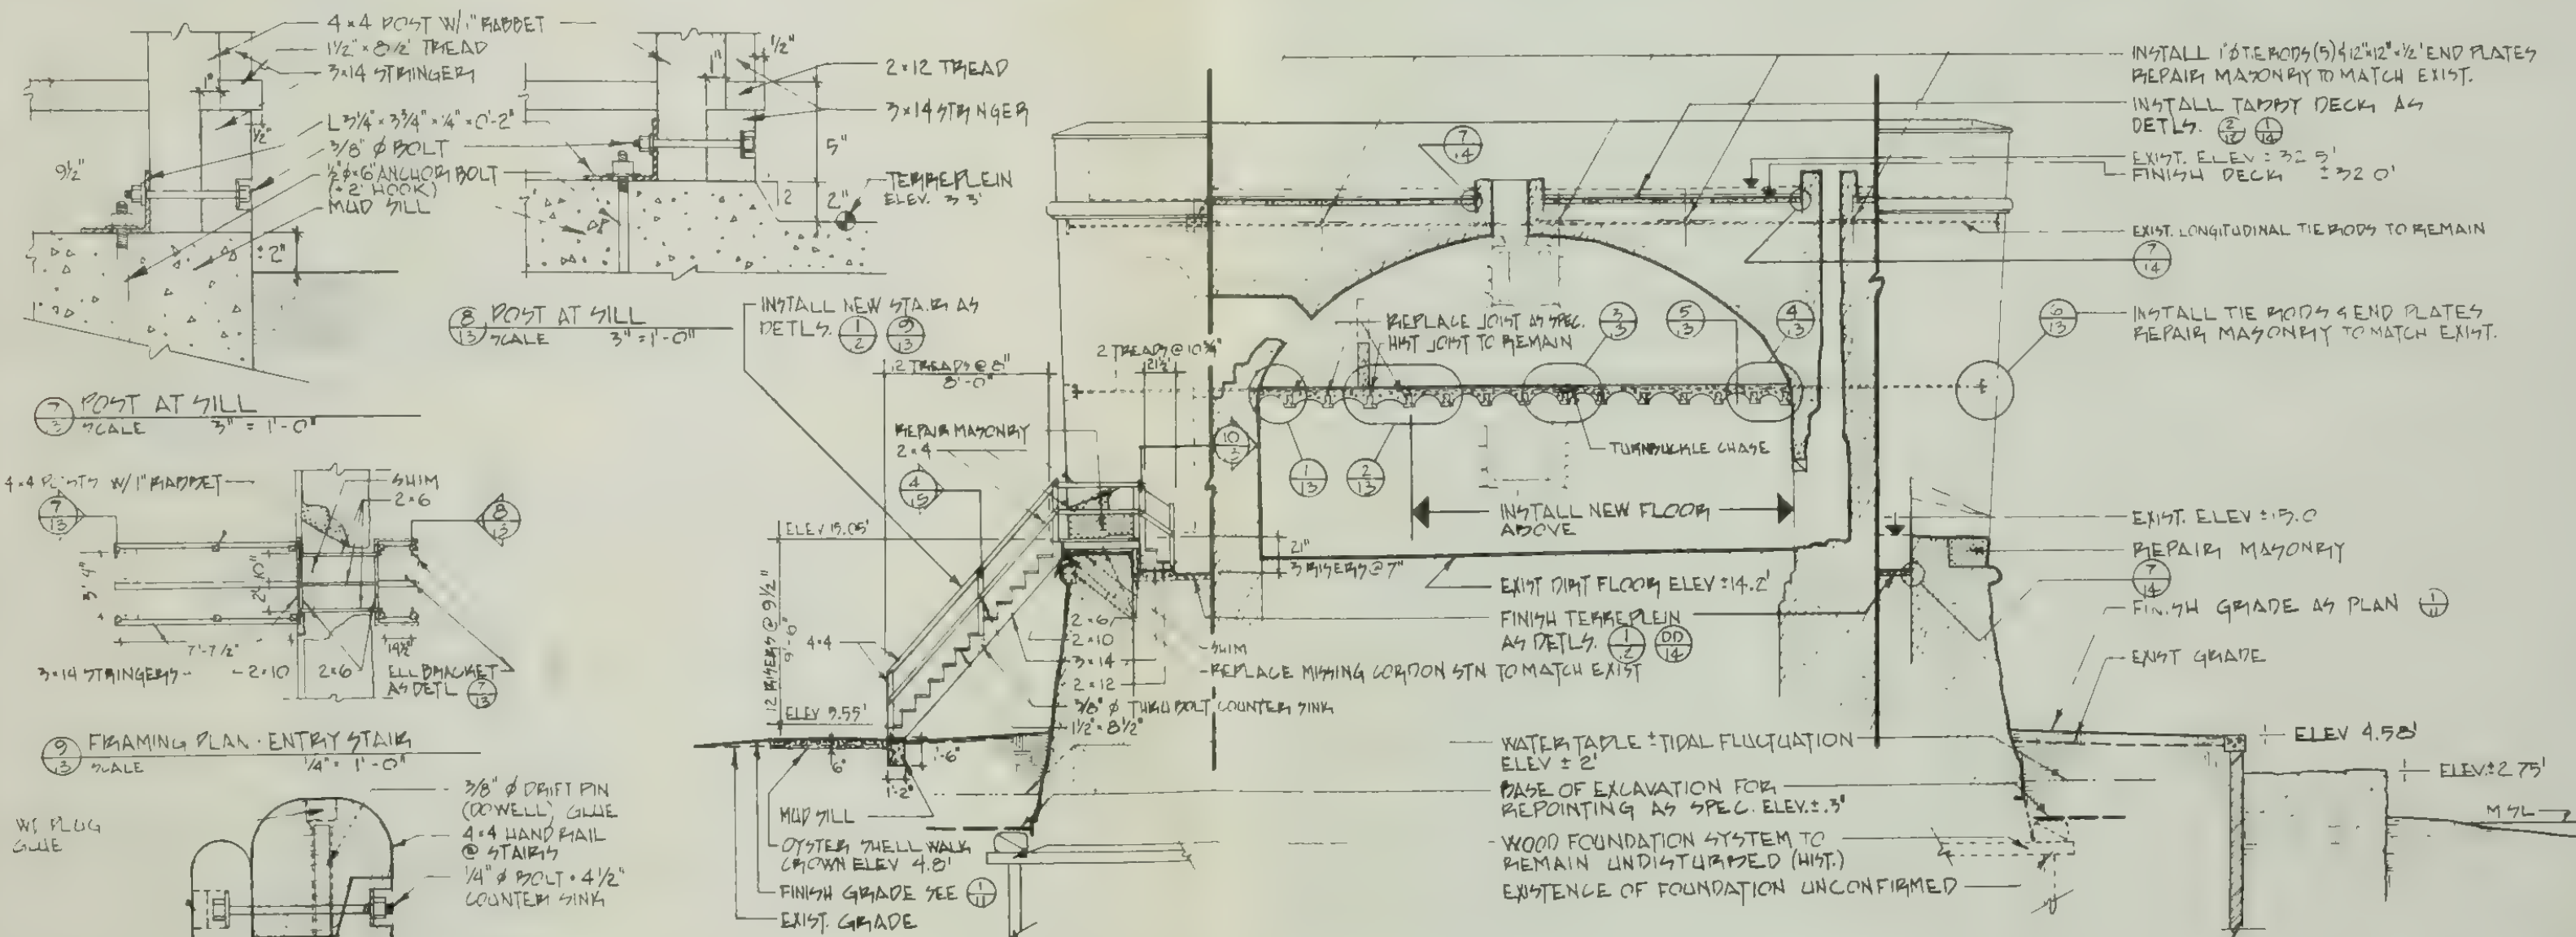 4×4 POST W/1" RABBET
1½" × 8½" TREAD
3×14 STRINGER
1"
½"
L 3¼" × 3¾" × ¼" × 0'-2"
3/8" Ø BOLT
½"Ø×6" ANCHOR BOLT
(+2" HOOK)
MUD SILL
9½"
±2"
7/3 POST AT SILL
SCALE 3" = 1'-0"
½"
1"
2×12 TREAD
3×14 STRINGER
5"
2
2"
TERREPLEIN
8/13 POST AT SILL
SCALE 3" = 1'-0"
4×4 POSTS W/1" RABBET
SHIM
2×6
7/13
8/13
3'-4"
2'-10"
7'-7½"
14½"
3×14 STRINGERS
2×10
2×6
ELL BRACKET
AS DETL 7/13
9/13 FRAMING PLAN · ENTRY STAIR
SCALE ¼" = 1'-0"
W/ PLUG
GLUE
3/8" Ø DRIFT PIN
(DOWELL) GLUE
4×4 HAND RAIL
@ STAIRS
¼" Ø BOLT · 4½"
COUNTER SINK
INSTALL NEW STAIR AS
DETLS. 1/2 9/13
12 TREADS @ 8"
8'-0"
2 TREADS @ 10¾"
21½"
REPAIR MASONRY
2×4
4/15
10/3
ELEV 15.05'
12 RISERS @ 9½"
9'-6"
4×4
ELEV 5.55'
21"
3 RISERS @ 7"
2×6
2×10
3×14
2×12
3/8" Ø THRU BOLT COUNTER SINK
1½" × 8½"
SHIM
REPLACE MISSING CORDON STN TO MATCH EXIST
6"
1'-6"
1'-2"
MUD SILL
OYSTER SHELL WALK
CROWN ELEV 4.8'
FINISH GRADE SEE 1/11
EXIST. GRADE
7/14
REPLACE JOIST AS SPEC.
HIST JOIST TO REMAIN
3/3
5/13
4/13
TURNBUCKLE CHASE
1/13
2/13
INSTALL NEW FLOOR
ABOVE
EXIST DIRT FLOOR ELEV ±14.2'
FINISH TERREPLEIN
AS DETLS. 1/2 DD/14
WATER TABLE ± TIDAL FLUCTUATION
ELEV ± 2'
BASE OF EXCAVATION FOR
REPOINTING AS SPEC. ELEV. ±.3'
WOOD FOUNDATION SYSTEM TO
REMAIN UNDISTURBED (HIST.)
EXISTENCE OF FOUNDATION UNCONFIRMED
INSTALL 1"Ø TIE RODS (5) & 12"×12"×½" END PLATES
REPAIR MASONRY TO MATCH EXIST.
INSTALL TABBY DECK AS
DETLS. 2/12 1/14
EXIST. ELEV ±32.5'
FINISH DECK ±32.0'
EXIST. LONGITUDINAL TIE RODS TO REMAIN
7/14
6/13
INSTALL TIE RODS & END PLATES
REPAIR MASONRY TO MATCH EXIST.
EXIST. ELEV ±15.0
REPAIR MASONRY
7/14
FINISH GRADE AS PLAN 1/11
EXIST GRADE
ELEV 4.58'
ELEV. ±2.75'
MSL